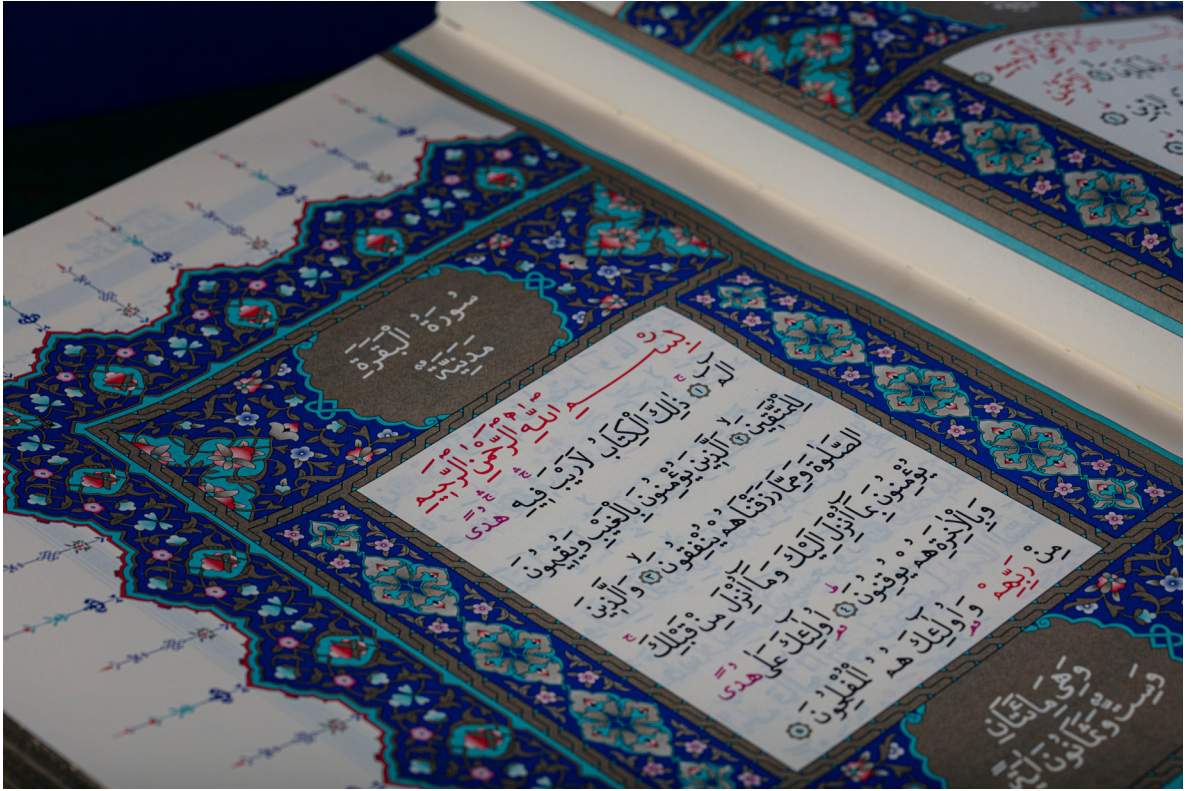 سُورَةُ الْبَقَرَةِ
مَدَنِيَّةٌ
بِسْمِ اللّٰهِ الرَّحْمٰنِ الرَّحِيمِ
الٓمٓ ﴿١﴾ ذٰلِكَ الْكِتَابُ لَا رَيْبَ فِيهِ هُدًى
لِلْمُتَّقِينَ ﴿٢﴾ اَلَّذِينَ يُؤْمِنُونَ بِالْغَيْبِ وَيُقِيمُونَ
الصَّلٰوةَ وَمِمَّا رَزَقْنَاهُمْ يُنْفِقُونَ ﴿٣﴾ وَالَّذِينَ
يُؤْمِنُونَ بِمَٓا اُنْزِلَ اِلَيْكَ وَمَٓا اُنْزِلَ مِنْ قَبْلِكَ
وَبِالْاٰخِرَةِ هُمْ يُوقِنُونَ ﴿٤﴾ اُو۬لٰٓئِكَ عَلٰى هُدًى
مِنْ رَبِّهِمْ وَاُو۬لٰٓئِكَ هُمُ الْمُفْلِحُونَ ﴿٥﴾
وَهِيَ مِائَتَانِ
وَسِتٌّ وَثَمَانُونَ اٰيَةً